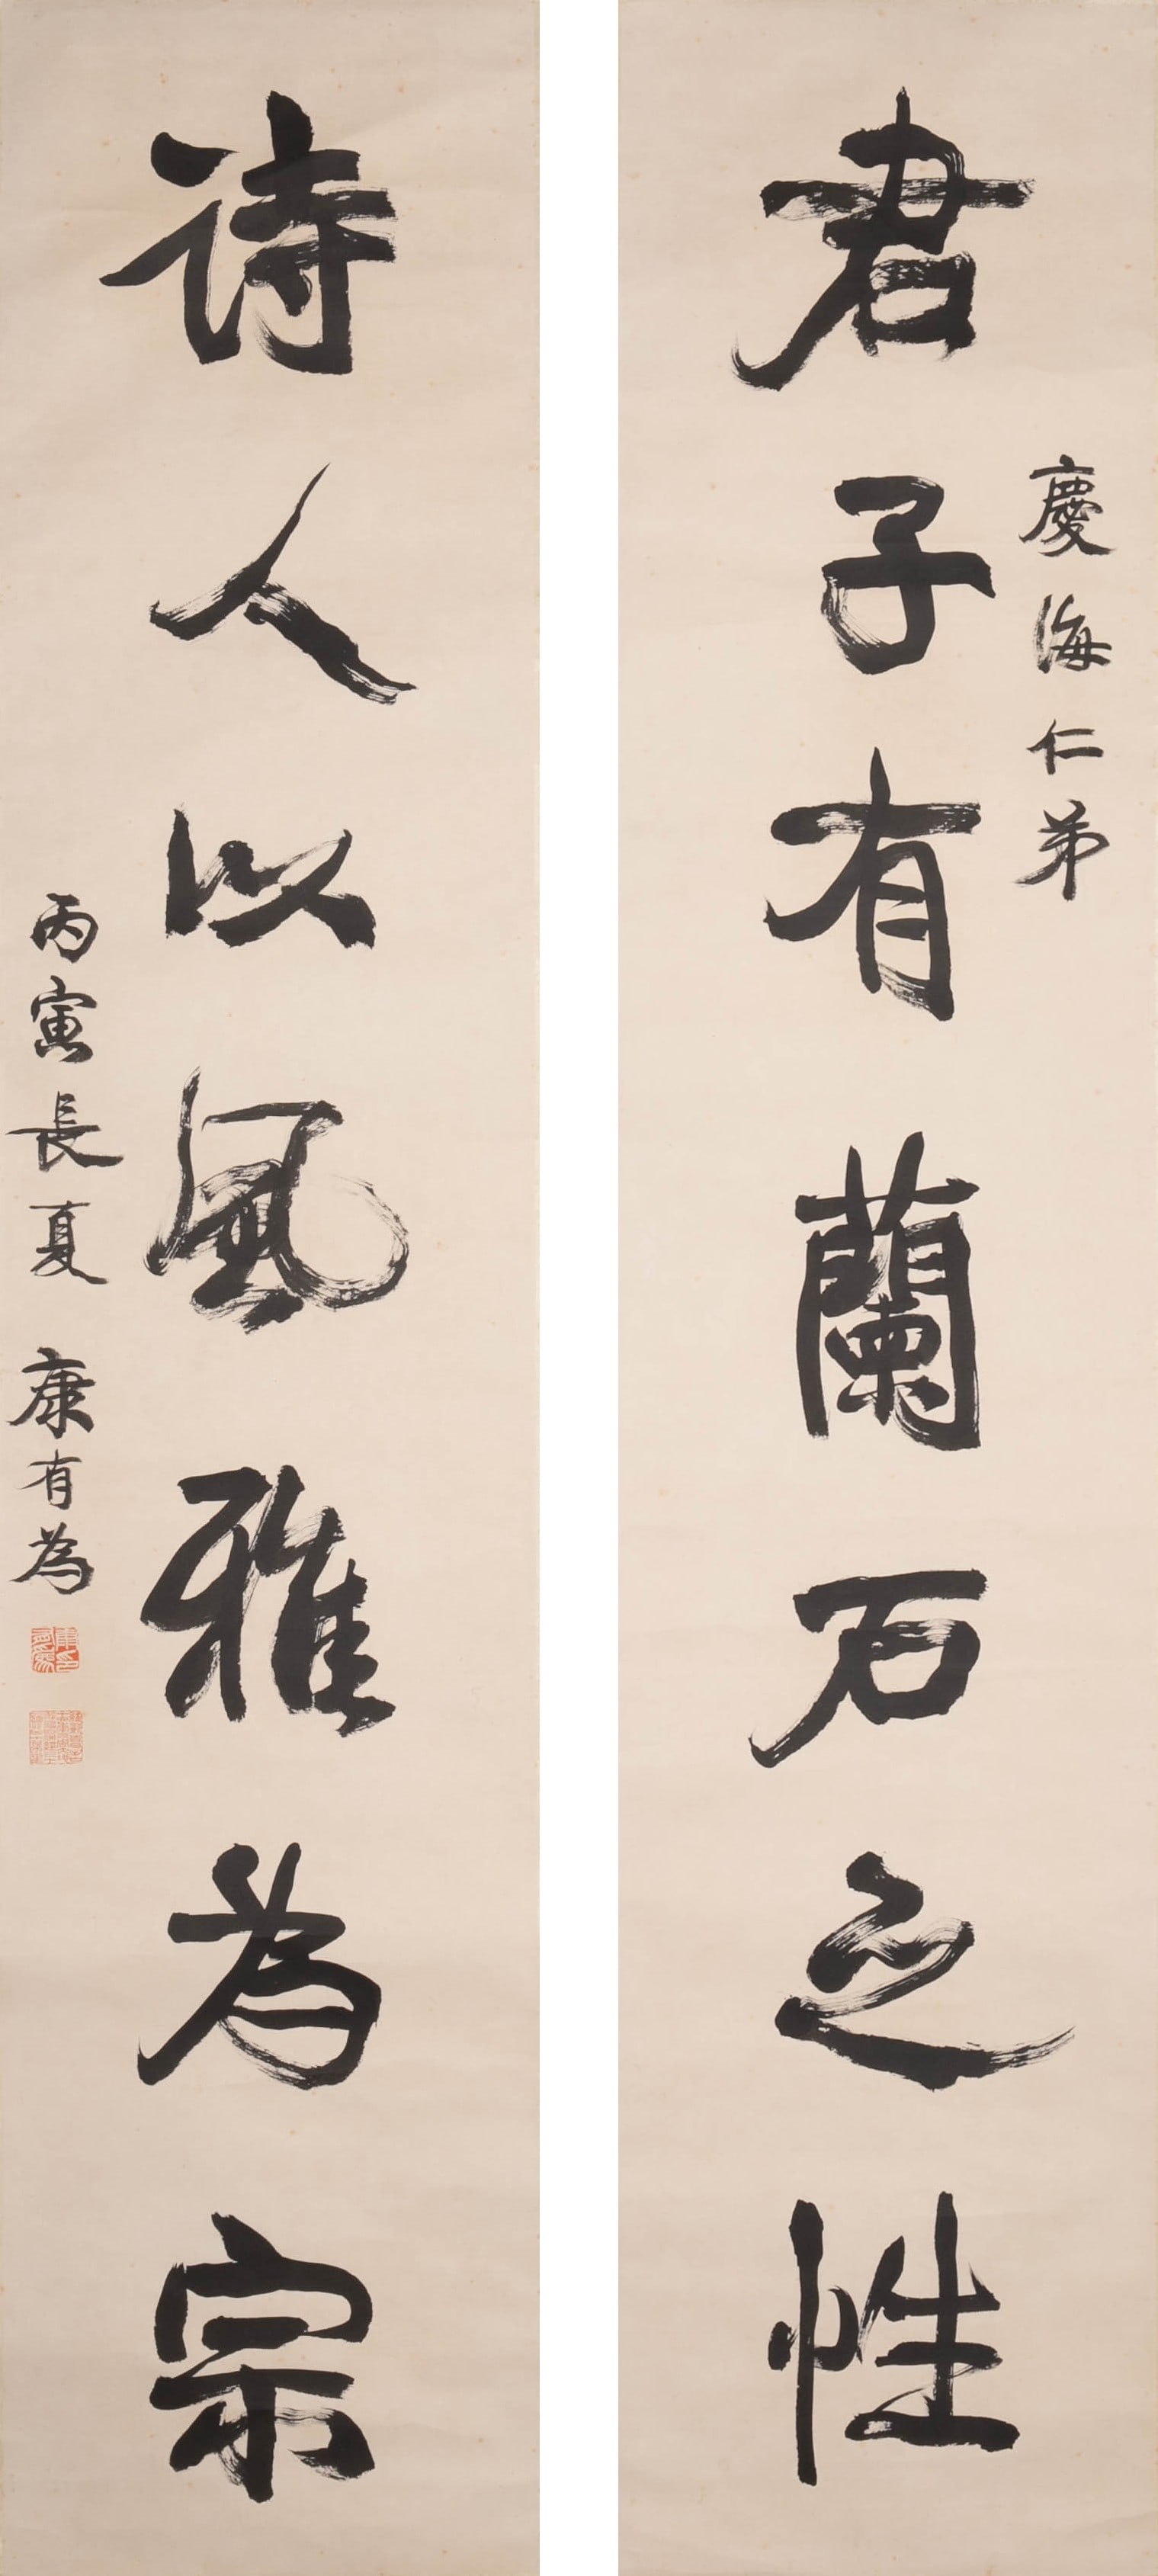 慶海仁弟
君子有蘭石之性
詩人以風雅為宗
丙寅長夏 康有為